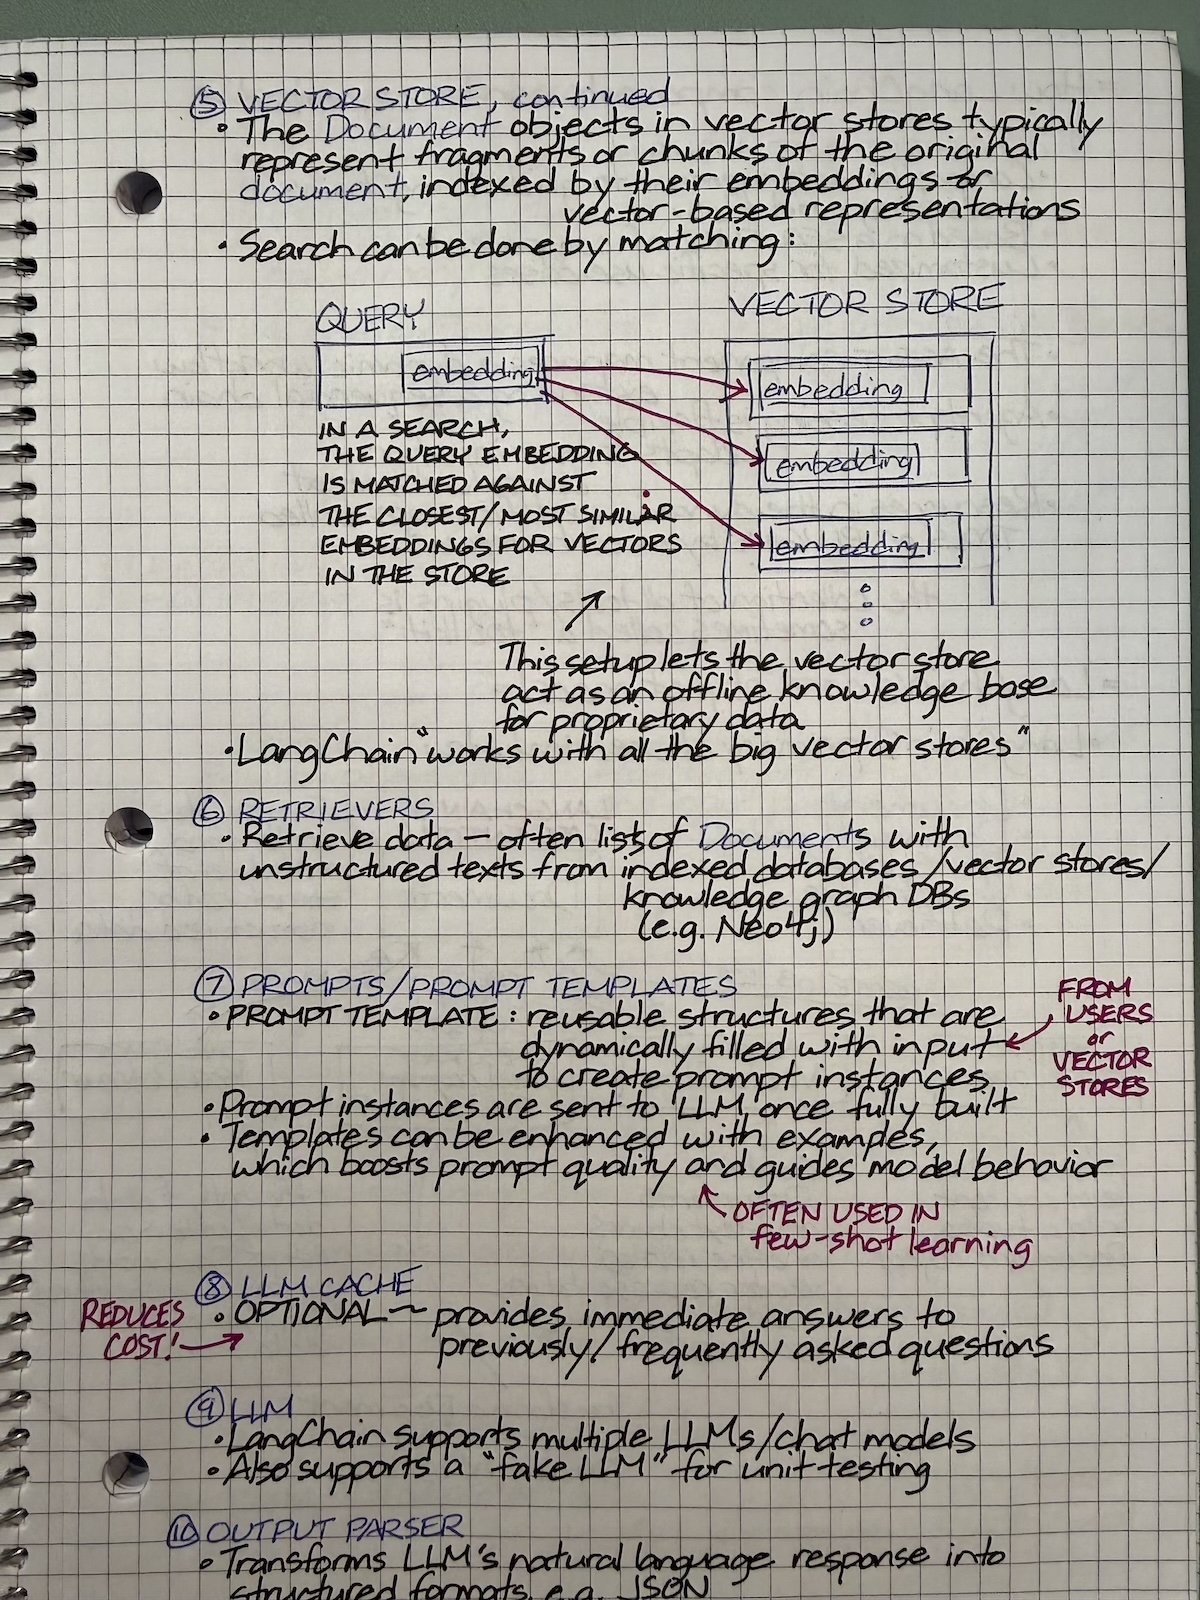 ⑤ VECTOR STORE, continued
• The Document objects in vector stores typically
represent fragments or chunks of the original
document, indexed by their embeddings or
vector-based representations
• Search can be done by matching:
QUERY
embedding
IN A SEARCH,
THE QUERY EMBEDDING
IS MATCHED AGAINST
THE CLOSEST/MOST SIMILAR
EMBEDDINGS FOR VECTORS
IN THE STORE
VECTOR STORE
embedding
embedding
embedding
This setup lets the vector store
act as an offline knowledge base
for proprietary data
• LangChain "works with all the big vector stores"
⑥ RETRIEVERS
• Retrieve data — often lists of Documents with
unstructured texts from indexed databases/vector stores/
knowledge graph DBs
(e.g. Neo4j)
⑦ PROMPTS/PROMPT TEMPLATES
• PROMPT TEMPLATE: reusable structures that are
dynamically filled with input
to create prompt instances
FROM
USERS
or
VECTOR
STORES
• Prompt instances are sent to LLM once fully built
• Templates can be enhanced with examples,
which boosts prompt quality and guides model behavior
OFTEN USED IN
few-shot learning
⑧ LLM CACHE
REDUCES
COST!
• OPTIONAL — provides immediate answers to
previously/frequently asked questions
⑨ LLM
• LangChain supports multiple LLMs/chat models
• Also supports a "fake LLM" for unit testing
⑩ OUTPUT PARSER
• Transforms LLM's natural language response into
structured formats, e.g. JSON